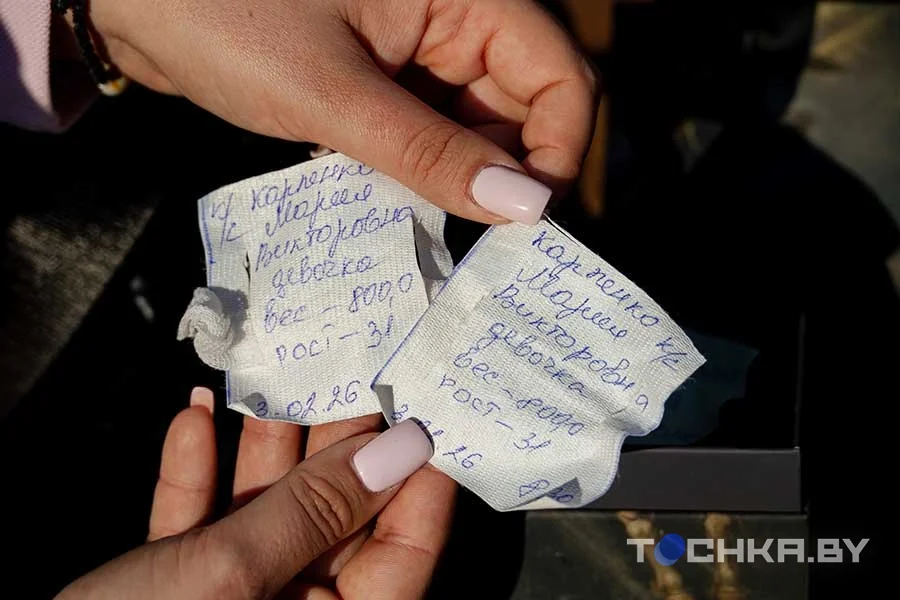 Карпенко
к/с Мария
Викторовна
девочка
вес - 800,0
рост - 31
3.02.26
Карпенко
Мария к/с
Викторовна
девочка
вес - 800,0
рост - 31
26
TOCHKA.BY